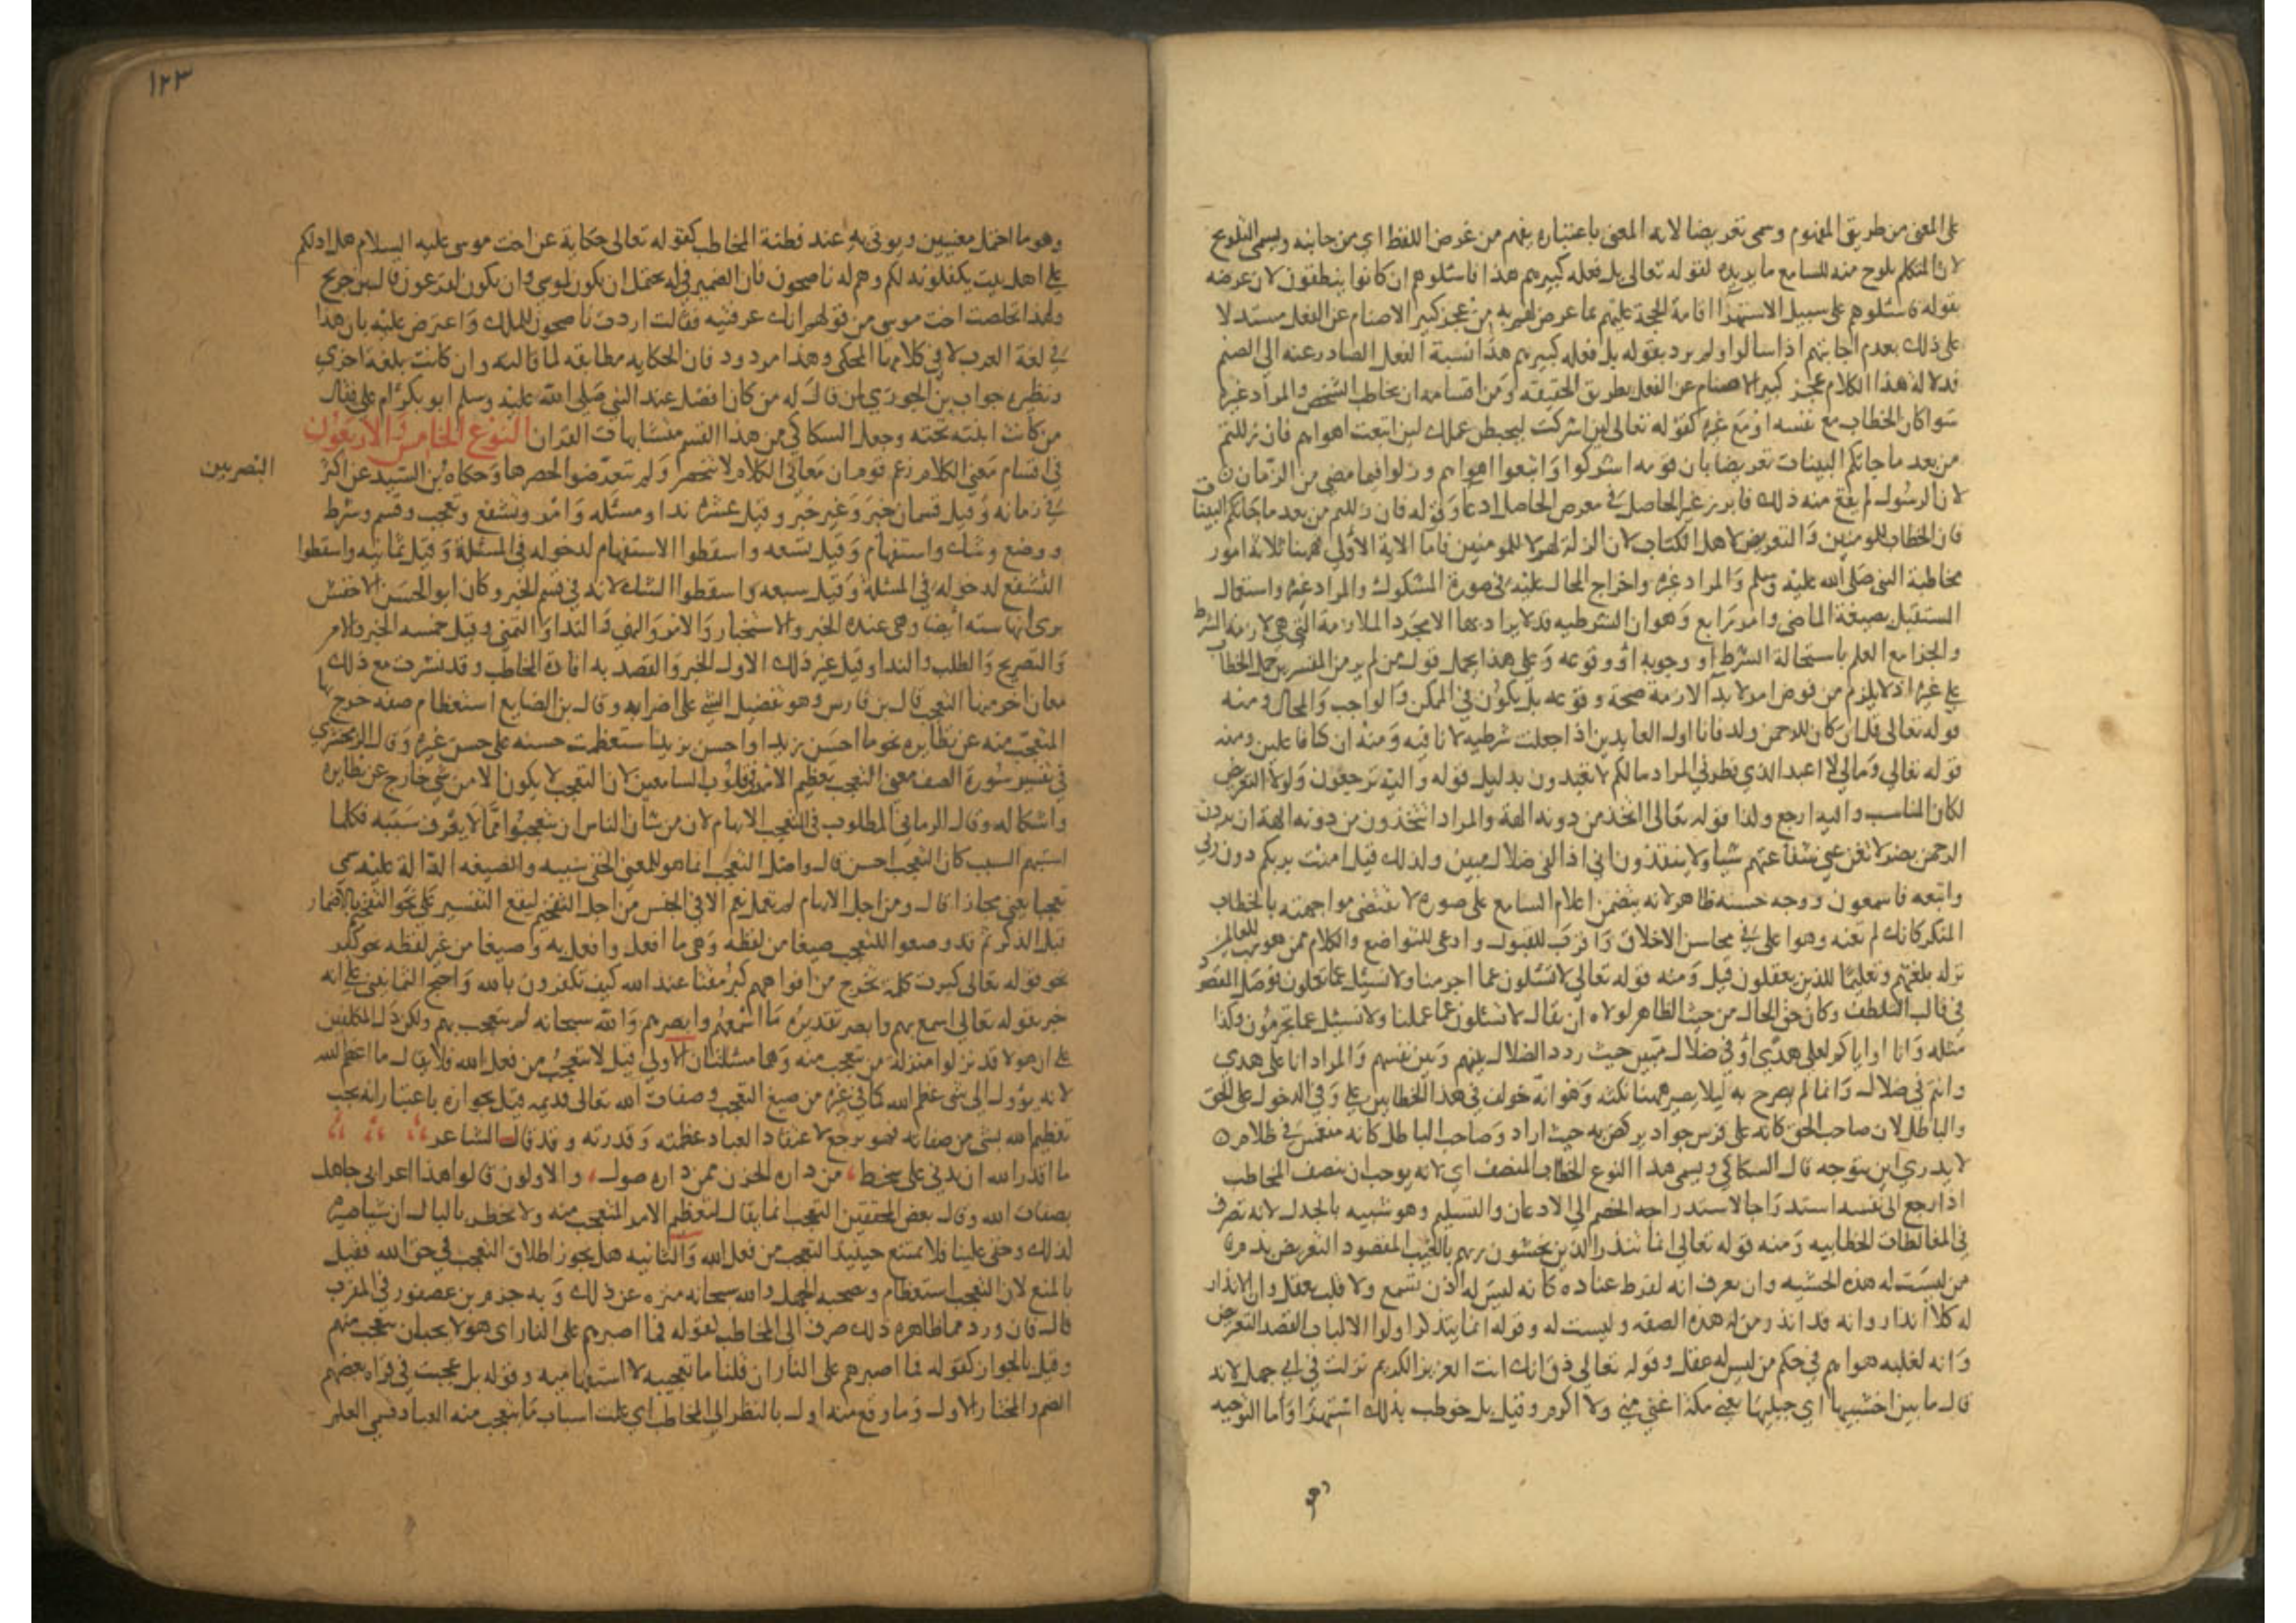 على المعنى من طريق المفهوم وسمى تعريضا لانه المعنى باعتباره يفهم من عرض اللفظ اي من جانبه ويسمى التلويح
لان المتكلم يلوح منه للسامع ما يريده لقوله تعالى بل فعله كبيرهم هذا فاسئلوهم ان كانوا ينطقون لان غرضه
بقوله فاسئلوهم على سبيل الاستهزا اقامة الحجة عليهم بما عرض لهم به من عجز كبير الاصنام عن الفعل مستدلا
على ذلك بعدم اجابتهم اذا سالوا ولم يرد بقوله بل فعله كبيرهم هذا نسبة الفعل الصادر عنه الى الصنم
فدلالة هذا الكلام عجز كبير الاصنام عن الفعل بطريق الحقيقه ومن اقسامه ان يخاطب الشخص والمراد غيره
سوا كان الخطاب مع نفسه او مع غيره كقوله تعالى لين اشركت ليحبطن عملك لين اتبعت اهواهم فان زللتم
من بعد ما جاتكم البينات تعريضا بان قومه اشركوا واتبعوا اهواهم وزلوا فيما مضى من الزمان
لان الرسول لم يقع منه ذلك فابرز غير الحاصل في معرض الحاصل ادعا وقوله فان زللتم من بعد ما جاتكم البينات
فان الخطاب للمومنين والتعريض لاهل الكتاب لان الزلة لهم لا للمومنين فاما الاية الاولى فهنا ثلاثة امور
مخاطبة النبي صلى الله عليه وسلم والمراد غيره واخراج المحال عليه في صورة المشكوك والمراد غيره واستعمال
المستقبل بصيغة الماضي وامر رابع وهو ان الشرطيه قد لا يراد بها الا مجرد الملازمة التي هي لازمة الشرط
والجزا مع العلم باستحالة الشرط او وجوبه او وقوعه وعلى هذا يحمل قول من لم ير من المفسرين حمل الخطاب
على غيره اذ لا يلزم من فرض امر لا بد الازمة صحة وقوعه بل يكون في الممكن والواجب والمحال ومنه
قوله تعالى قل ان كان للرحمن ولد فانا اول العابدين اذا جعلت شرطيه لا نافيه ومنه ان كنا فاعلين ومنه
قوله تعالى ومالي لا اعبد الذي فطرني المراد مالكم لا تعبدون بدليل قوله واليه ترجعون ولولا التعريض
لكان المناسب واليه ارجع ولذا قوله تعالى ااتخذ من دونه الهة والمراد اتتخذون من دونه الهة ان يردن
الرحمن بضر لا تغن عني شفاعتهم شيا ولا ينقذون اني اذا لفي ضلال مبين ولذلك قيل امنت بربكم دون ربي
واتبعه فاسمعون ووجه حسنه ظاهر لانه يتضمن اعلام السامع على صوره لا تقتضي مواجهته بالخطاب
المنكر كانك لم تعنه وهوا على في محاسن الاخلاق واقرب للقبول وادعى للتواضع والكلام ممن هو رب العالمين
نزله بلغتهم وتعليما للذين يعقلون قيل ومنه قوله تعالى لا تسئلون عما اجرمنا ولا نسئل عما تعملون فحصل المقصود
في قالب التلطف وكان حق الحال من حيث الظاهر لولاه ان يقال لا تسئلون عما عملنا ولا نسئل عما تجرمون وكذا
مثله وانا او اياكم لعلى هدى او في ضلال مبين حيث ردد الضلال بينهم وبين نفسهم والمراد انا على هدى
وانتم في ضلال وانما لم يصرح به ليلا يصير هنا نكته وهو انه خولف في هذا الخطاب بين على وفي الدخول على الحق
والباطل لان صاحب الحق كانه على فرس جواد يركض به حيث اراد وصاحب الباطل كانه منغمس في ظلام
لا يدري اين يتوجه قال السكاكي ويسمى هذا النوع الخطاب المنصف اي لانه يوجب ان ينصف المخاطب
اذا رجع الى نفسه استدراجا لاستدراجه الخصم الى الاذعان والتسليم وهو شبيه بالجدل لانه تصرف
في المغالطات الخطابيه ومنه قوله تعالى انما تنذر الذين يخشون ربهم بالغيب المقصود التعريض بذم
من ليست له هذه الخشيه وان يعرف انه لفرط عناده كانه ليس له اذن تسمع ولا قلب يعقل وان الانذار
له كلا انذار وانه قد انذر من له هذه الصفه وليست له وقوله انما يتذكر اولوا الالباب القصد التعريض
وانه لغلبه هواهم في حكم من ليس له عقل وقوله تعالى ذق انك انت العزيز الكريم نزلت في ابي جهل لانه
قال ما بين اخشبيها اي جبليها يعني مكة اعني مني ولا اكرم وقيل بل خوطب بذلك استهزا واما التوجيه
١٢٣
وهو ما احتمل معنيين ويوتى به عند فطنة المخاطب كقوله تعالى حكاية عن اخت موسى عليه السلام هل ادلكم
على اهل بيت يكفلونه لكم وهم له ناصحون فان الضمير في له يحتمل ان يكون لموسى وان يكون لفرعون قال بن جريج
ولهذا تخلصت اخت موسى من قولهم انك عرفتيه فقالت اردت ناصحون للملك واعترض عليه بان هذا
في لغة العرب لا في كلامها المحكي وهذا مردود فان الحكايه مطابقه لما قالته وان كانت بلغه اخرى
ونظيره جواب بن الجوزي لمن قال له من كان افضل عند النبي صلى الله عليه وسلم ابو بكر ام علي فقال
من كانت ابنته تحته وجعل السكاكي من هذا القسم متشابهات القران النوع الخامس والاربعون
في اقسام معنى الكلام زعم قوم ان معاني الكلام لا تنحصر ولم يتعرضوا لحصرها وحكاه بن السيد عن اكثر
البصريين
في زمانه وقيل قسمان خبر وغير خبر وقيل عشره ندا ومسئله وامر وتشفع وتعجب وقسم وشرط
ووضع وشك واستفهام وقيل تسعه واسقطوا الاستفهام لدخوله في المسئلة وقيل ثمانيه واسقطوا
التشفع لدخوله في المسئلة وقيل سبعه واسقطوا الشك لانه في قسم الخبر وكان ابو الحسن الاخفش
يرى انها سته ايضا وهي عنده الخبر والاستخبار والامر والنهي والندا والتمني وقيل خمسه الخبر والامر
والتصريح والطلب والندا وقيل غير ذلك الاول الخبر والقصد به افادة المخاطب وقد تشرب مع ذلك
معان اخر منها التعجب قال بن فارس وهو تفضيل الشي على اضرابه وقال بن الضايع استعظام صفه خرج بها
المتعجب منه عن نظايره نحو ما احسن زيدا واحسن بزيد استعظمت حسنه على حسن غيره وقال الزمخشري
في تفسير سورة الصف معنى التعجب تعظيم الامر في قلوب السامعين لان التعجب لا يكون الا من شي خارج عن نظايره
واشكاله وقال الرماني المطلوب في التعجب الابهام لان من شان الناس ان يتعجبوا مما لا يعرف سببه فكلما
استبهم السبب كان التعجب احسن قال واصل التعجب انما هو للمعنى الخفي سببه والصيغه الدالة عليه تسمى
تعجبا يعني مجازا قال ومن اجل الابهام لم تعمل نعم الا في الجنس من اجل التفخيم ليقع التفسير على نحو التفخيم بالاضمار
قبل الذكر ثم قد وضعوا للتعجب صيغا من لفظه وهي ما افعل وافعل به وصيغا من غير لفظه نحو كبر
نحو قوله تعالى كبرت كلمة تخرج من افواههم كبر مقتا عند الله كيف تكفرون بالله واحتج الثمانيني على انه
خبر بقوله تعالى اسمع بهم وابصر تقديره ما اسمعهم وابصرهم والله سبحانه لم يتعجب بهم ولكن دل المكلفين
على ان هولا قد نزلوا منزلة من يتعجب منه وهنا مسئلتان الاولى قيل لا يتعجب من فعل الله فلا يقال ما اعظم الله
لانه يؤول الى شي عظم الله كما في غيره من صيغ التعجب وصفات الله تعالى قديمه قيل بجوازه باعتبار انه يجب
تعظيم الله بشي من صفاته فهو يرجع لاعتقاد العباد عظمته وقدرته وقد قال الشاعر
ما اقدر الله ان يدني على سخط من داره الحزن ممن داره صول والاولون قالوا هذا اعرابي جاهل
بصفات الله وقال بعض المحققين التعجب انما يقال لتعظيم الامر المتعجب منه ولا يخطر بالبال ان شيا صيره
لذلك وخفي علينا فلا يمتنع حينيذ التعجب من فعل الله والثانيه هل يجوز اطلاق التعجب في حق الله فقيل
بالمنع لان التعجب استعظام وصحبه الجهل والله سبحانه منزه عن ذلك وبه جزم بن عصفور في المقرب
قال فان ورد مما ظاهره ذلك صرف الى المخاطب لقوله فما اصبرهم على النار اي هولا يجب ان يتعجب منهم
وقيل بالجواز كقوله فما اصبرهم على النار ان قلنا ما تعجبيه لا استفهاميه وقوله بل عجبت في قراه بعضهم
الضم والمختار الاول وما وقع منه اول بالنظر الى المخاطب اي علت اسباب ما يتعجب منه العباد فسمى العلم